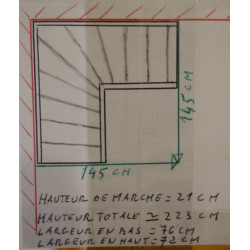 145 CM
145 CM
HAUTEUR DE MARCHE = 21 CM
HAUTEUR TOTALE ≃ 223 CM
LARGEUR EN BAS = 76 CM
LARGEUR EN HAUT = 72 CM